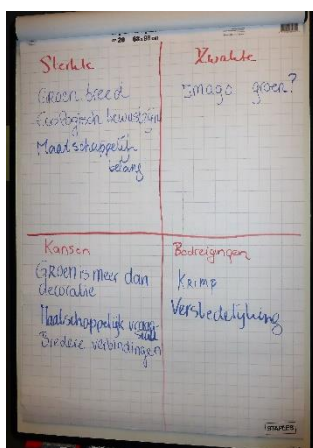 Sterkte
Groen breed
Ecologisch bewustzijn
Maatschappelijk
belang
Zwakte
Imago groen?
Kansen
Groen is meer dan
decoratie
Maatschappelijk vraag-
stuk
Bredere verbindingen
Bedreigingen
Krimp
Verstedelijking
STAPLES